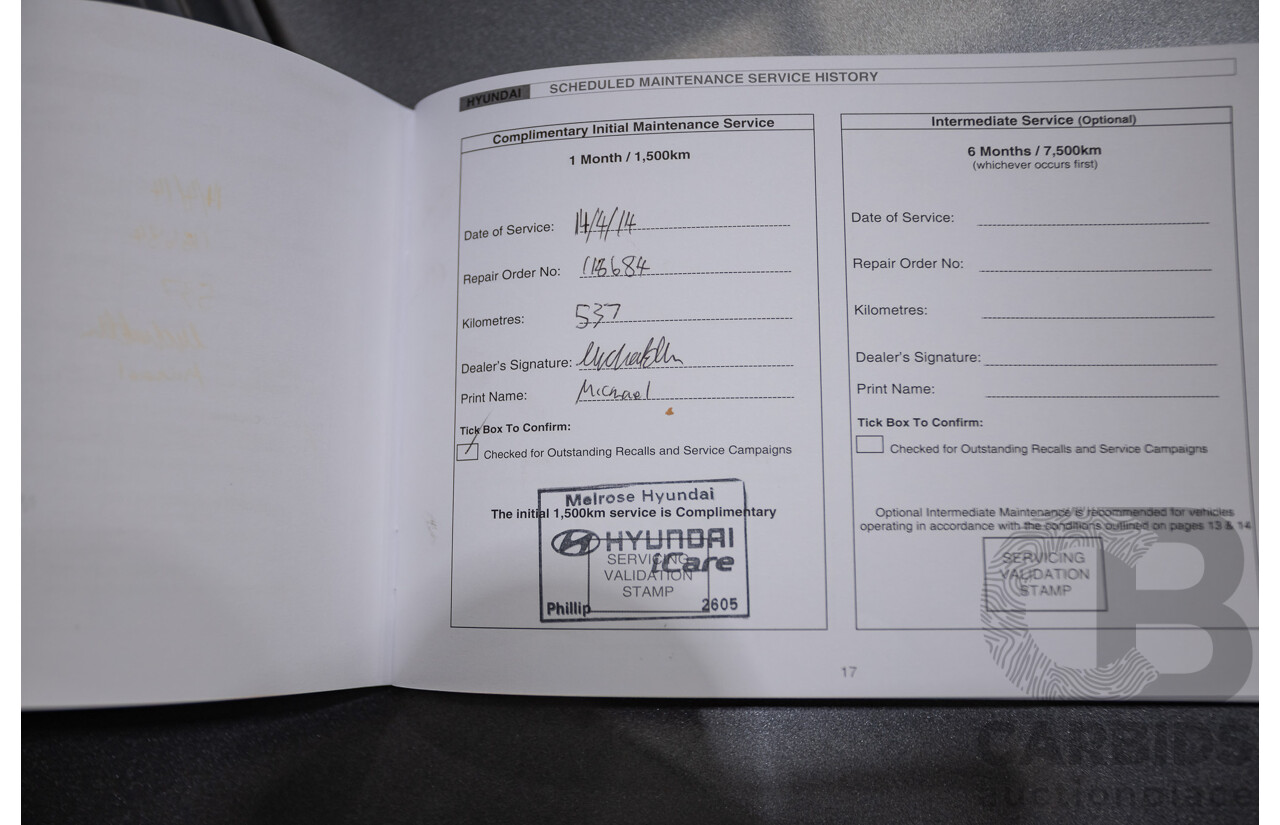 HYUNDAI SCHEDULED MAINTENANCE SERVICE HISTORY
Complimentary Initial Maintenance Service
1 Month / 1,500km
Date of Service: 14/4/14
Repair Order No: 118684
Kilometres: 537
Dealer's Signature:
Print Name: Michael
Tick Box To Confirm:
Checked for Outstanding Recalls and Service Campaigns
Melrose Hyundai
The initial 1,500km service is Complimentary
HYUNDAI
iCare
SERVICING
VALIDATION
STAMP
Phillip 2605
Intermediate Service (Optional)
6 Months / 7,500km
(whichever occurs first)
Date of Service:
Repair Order No:
Kilometres:
Dealer's Signature:
Print Name:
Tick Box To Confirm:
Checked for Outstanding Recalls and Service Campaigns
Optional Intermediate Maintenance is recommended for vehicles
operating in accordance with the conditions outlined on pages 13 & 14
SERVICING
VALIDATION
STAMP
17
CB
CARBIDS
auctionplace